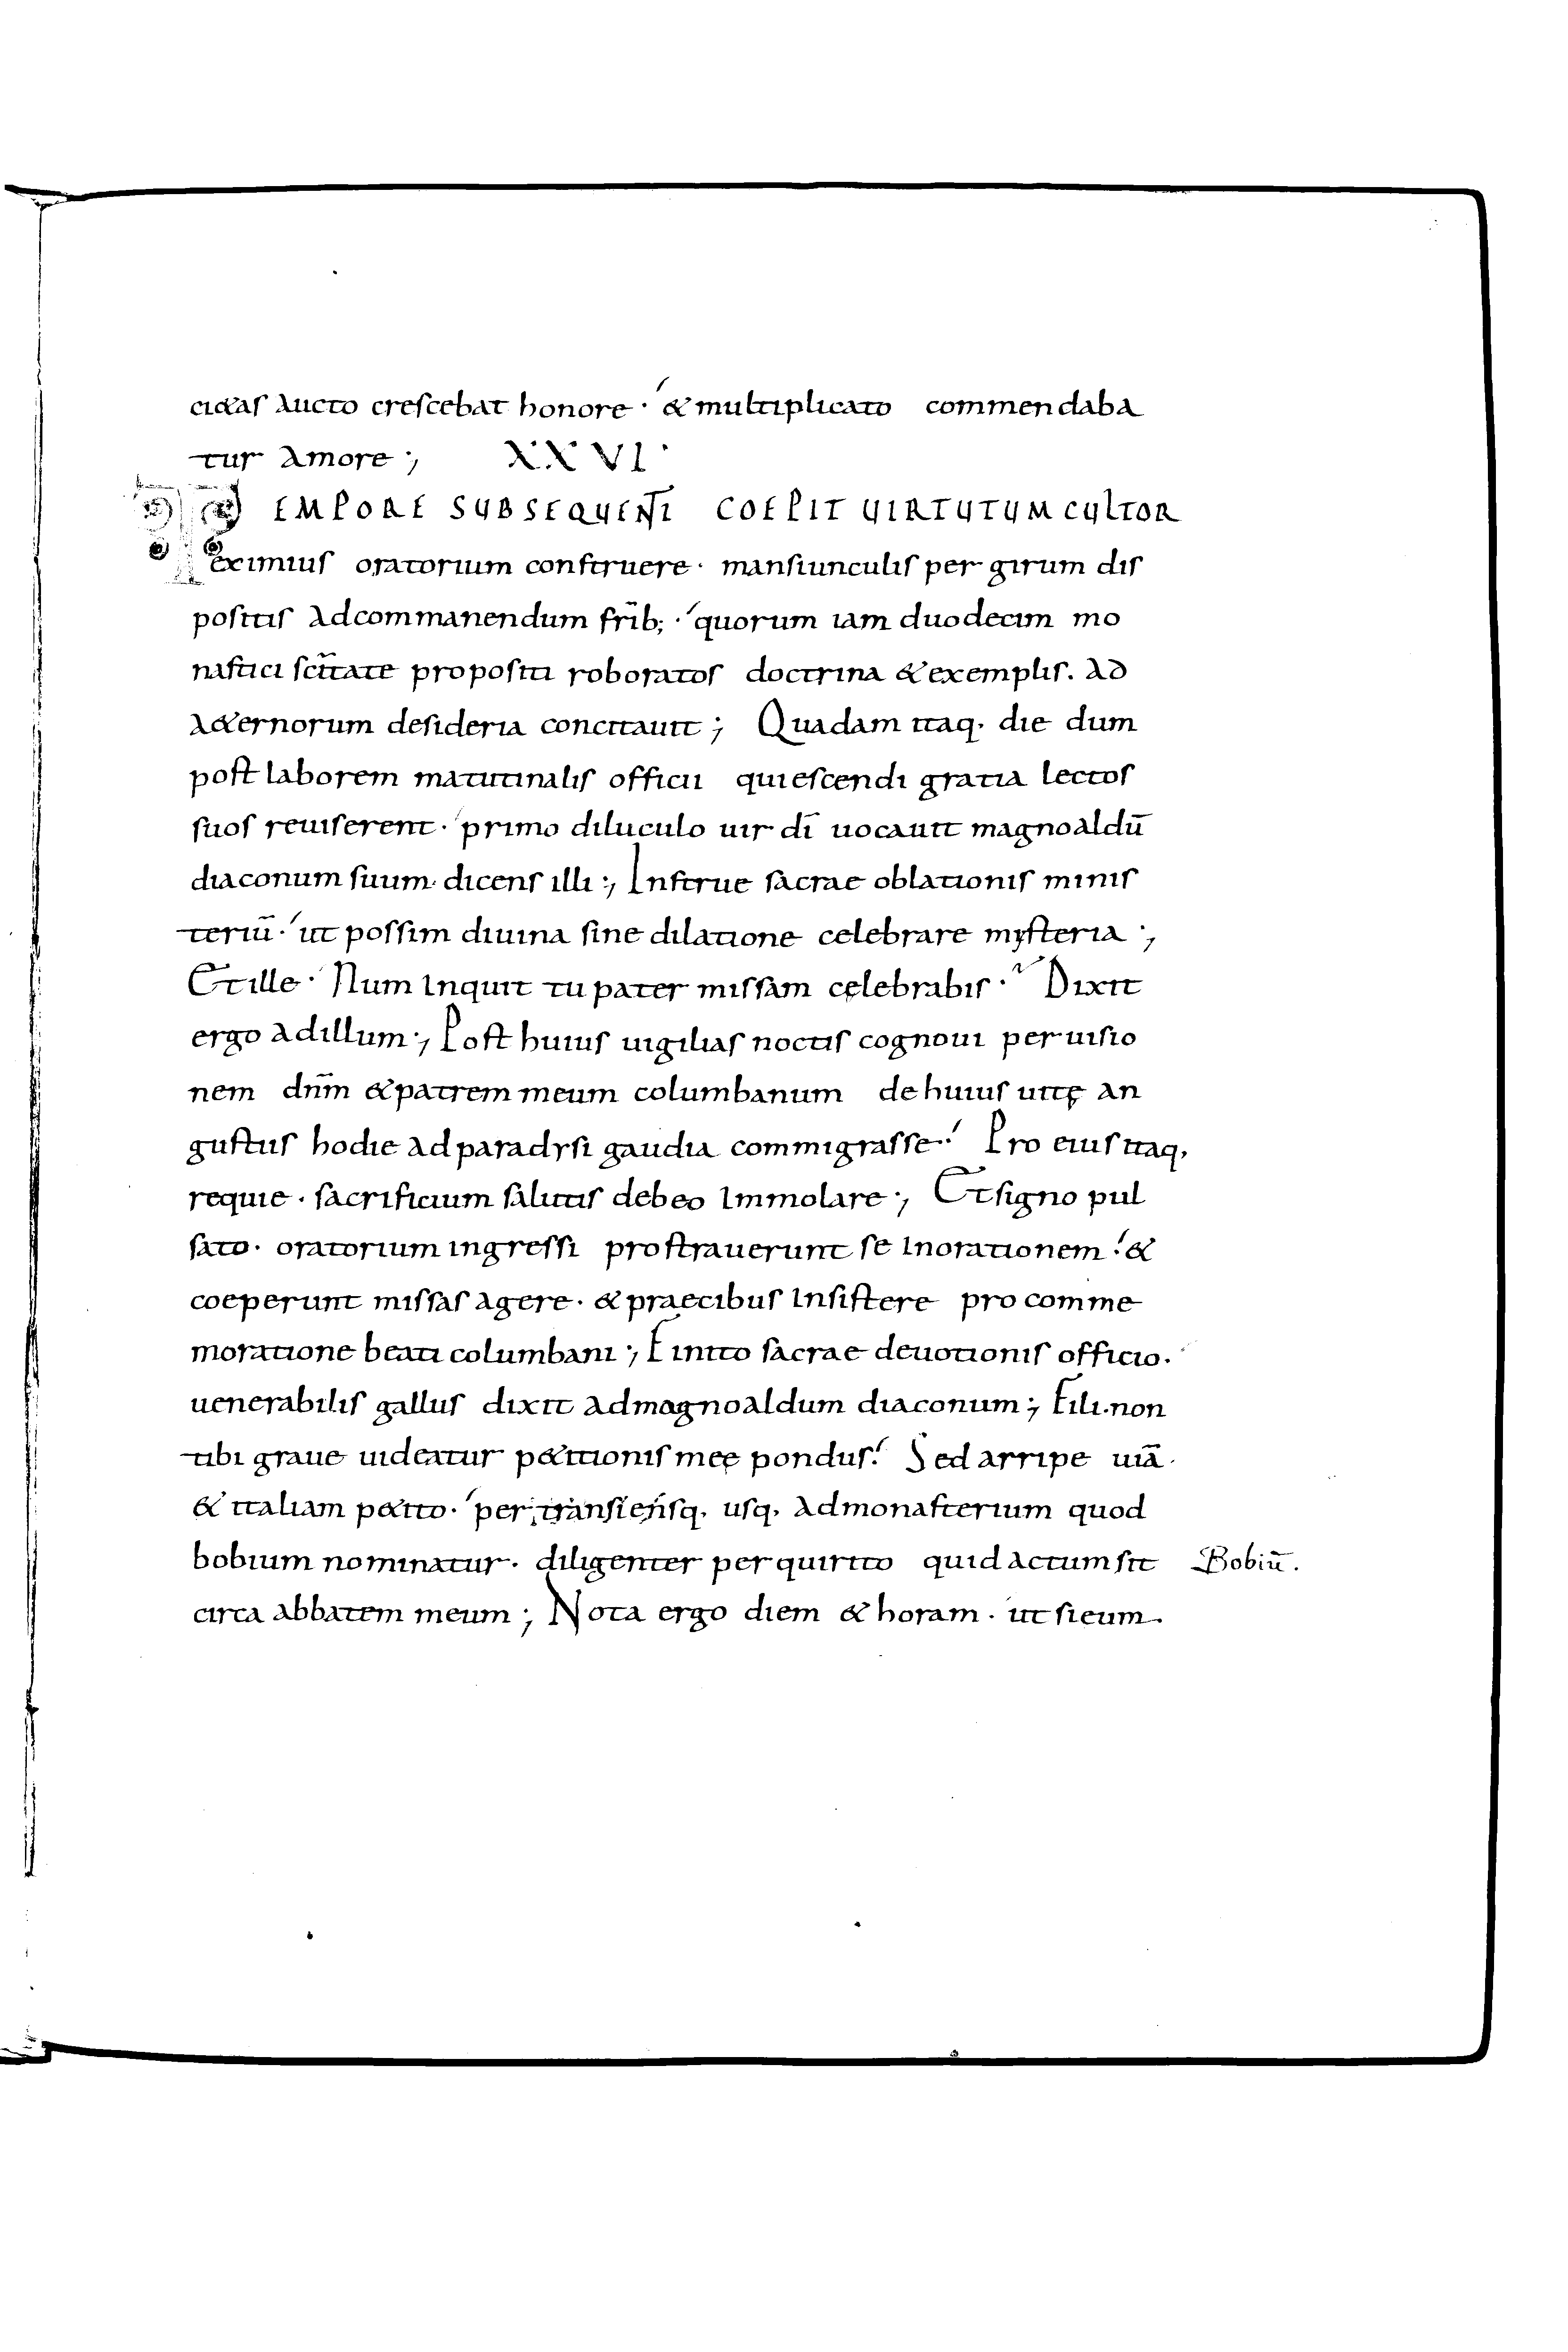 ci&as aucto crescebat honore · & multiplicato commendaba
tur amore ;, XXVI ·
TEMPORE SUBSEQUENTI COEPIT UIRTUTUM CULTOR
eximius oratorium construere · mansiunculis per girum dis
positis adcommanendum fr̄ib; · quorum iam duodecim mo
nastici sc̄itate propositi roboratos doctrina & exemplis. ad
a&ernorum desideria concitauit ; Quadam itaq· die dum
post laborem matutinalis officii quiescendi gratia lectos
suos reuiserent · primo diluculo uir dī uocauit magnoaldū
diaconum suum· dicens illi ;, Instrue sacrae oblationis minis
teriū · ut possim diuina sine dilatione celebrare mysteria ;,
Et ille · Num inquit tu pater missam cęlebrabis · Dixit
ergo adillum ;, Post huius uigilias noctis cognoui per uisio
nem dn̄m & patrem meum columbanum de huius uitę an
gustiis hodie ad paradysi gaudia commigrasse · Pro eius itaq,
requie · sacrificium salutis debeo immolare ;, Et signo pul
sato · oratorium ingressi prostrauerunt se inorationem · &
coeperunt missas agere · & praecibus insistere pro comme
moratione beati columbani ;, Finito sacrae deuotionis officio.
uenerabilis gallus dixit admagnoaldum diaconum ; Fili·non
tibi graue uideatur p&itionis meę pondus · Sed arripe uiā·
& italiam p&ito · per transieńsq, usq, admonasterium quod
bobium nominatur · diligenter perquirito quid actum sit Bobiū.
circa abbatem meum ; Nota ergo diem & horam · ut si eum